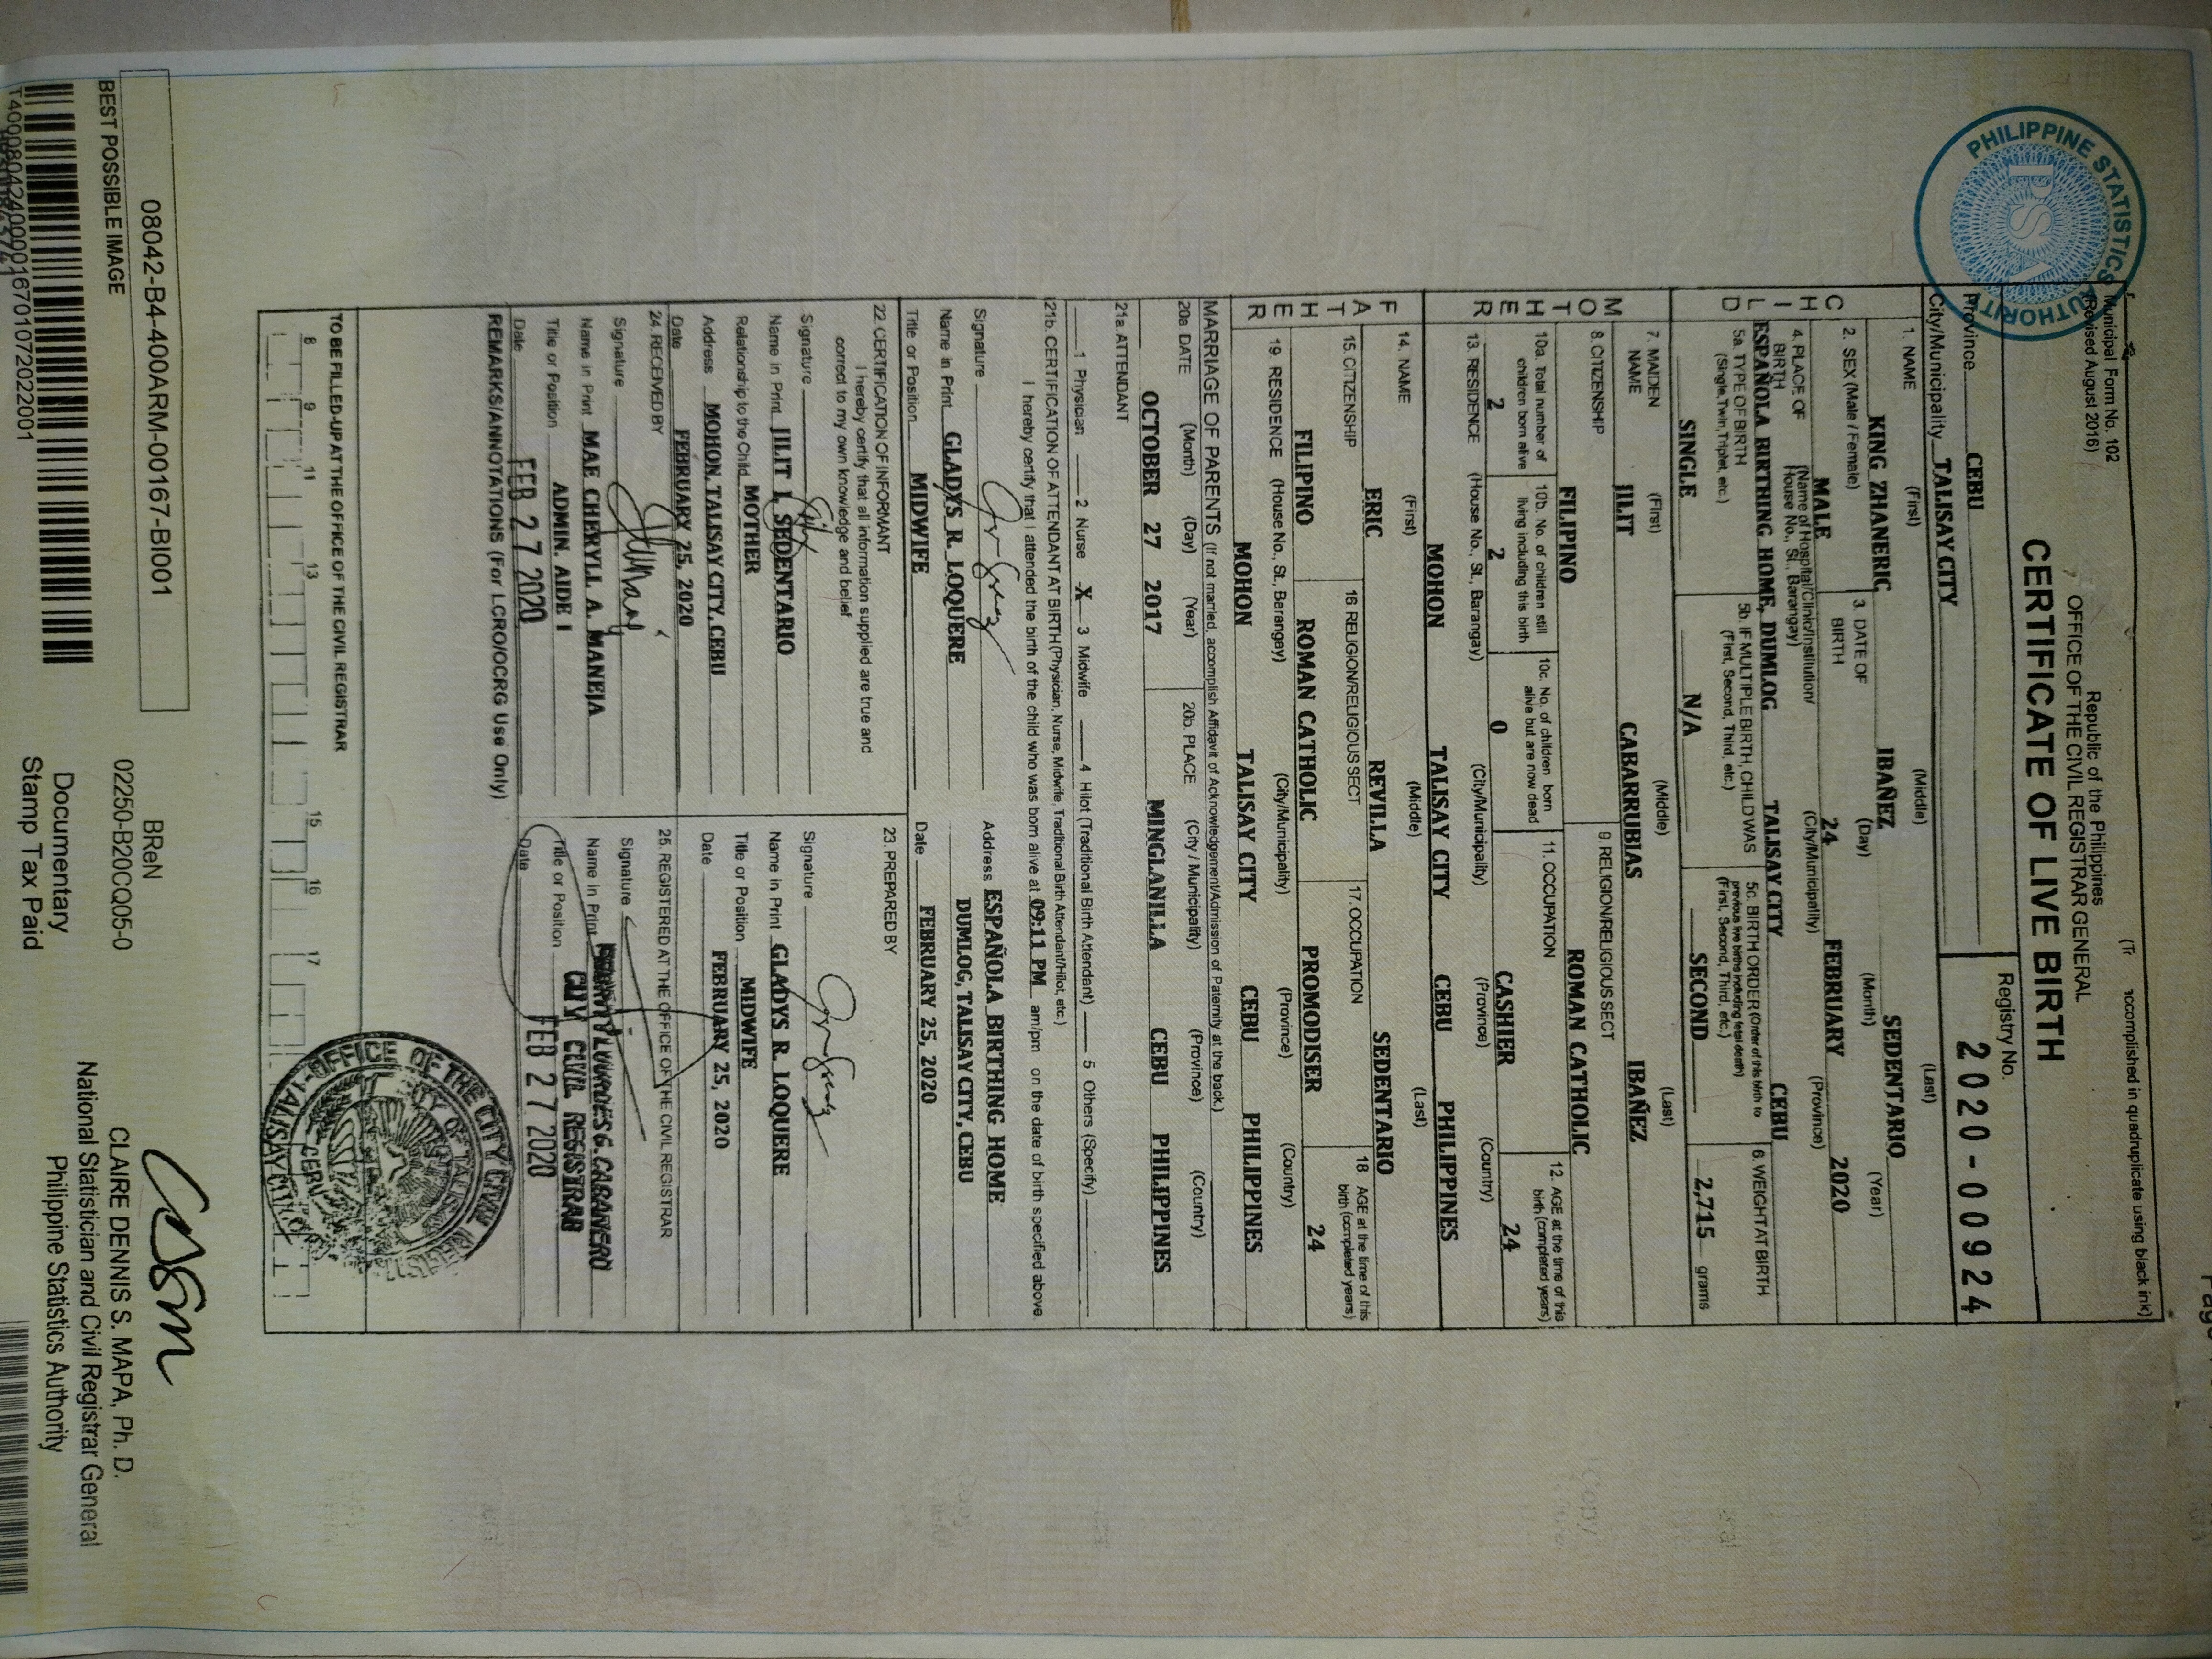 Municipal Form No. 102
(Revised August 2016)
accomplished in quadruplicate using black ink)
Republic of the Philippines
OFFICE OF THE CIVIL REGISTRAR GENERAL
CERTIFICATE OF LIVE BIRTH
PHILIPPINE STATISTICS AUTHORITY
PSA
Province CEBU
City/Municipality TALISAY CITY
Registry No.
2020-00924
CHILD
1. NAME (First) (Middle) (Last)
KING ZHANERIC IBAÑEZ SEDENTARIO
2. SEX (Male / Female)
MALE
3. DATE OF BIRTH (Day) (Month) (Year)
24 FEBRUARY 2020
4. PLACE OF BIRTH (Name of Hospital/Clinic/Institution/ House No., St., Barangay) (City/Municipality) (Province)
ESPAÑOLA BIRTHING HOME, DUMLOG TALISAY CITY CEBU
5a. TYPE OF BIRTH (Single, Twin, Triplet, etc.)
SINGLE
5b. IF MULTIPLE BIRTH, CHILD WAS (First, Second, Third, etc.)
N/A
5c. BIRTH ORDER (Order of this birth to previous live births including fetal death) (First, Second, Third, etc.)
SECOND
6. WEIGHT AT BIRTH
2,715 grams
MOTHER
7. MAIDEN NAME (First) (Middle) (Last)
JILIT CABARRUBIAS IBAÑEZ
8. CITIZENSHIP
FILIPINO
9. RELIGION/RELIGIOUS SECT
ROMAN CATHOLIC
10a. Total number of children born alive
2
10b. No. of children still living including this birth
2
10c. No. of children born alive but are now dead
0
11. OCCUPATION
CASHIER
12. AGE at the time of this birth (completed years)
24
13. RESIDENCE (House No., St., Barangay) (City/Municipality) (Province) (Country)
MOHON TALISAY CITY CEBU PHILIPPINES
FATHER
14. NAME (First) (Middle) (Last)
ERIC REVILLA SEDENTARIO
15. CITIZENSHIP
FILIPINO
16. RELIGION/RELIGIOUS SECT
ROMAN CATHOLIC
17. OCCUPATION
PROMODISER
18. AGE at the time of this birth (completed years)
24
19. RESIDENCE (House No., St., Barangay) (City/Municipality) (Province) (Country)
MOHON TALISAY CITY CEBU PHILIPPINES
MARRIAGE OF PARENTS (If not married, accomplish Affidavit of Acknowledgement/Admission of Paternity at the back.)
20a. DATE (Month) (Day) (Year)
OCTOBER 27 2017
20b. PLACE (City / Municipality) (Province) (Country)
MINGLANILLA CEBU PHILIPPINES
21a. ATTENDANT
1 Physician 2 Nurse X 3 Midwife 4 Hilot (Traditional Birth Attendant) 5 Others (Specify)
21b. CERTIFICATION OF ATTENDANT AT BIRTH (Physician, Nurse, Midwife, Traditional Birth Attendant/Hilot, etc.)
I hereby certify that I attended the birth of the child who was born alive at 09:11 PM am/pm on the date of birth specified above.
Signature
Name in Print GLADYS R. LOQUERE
Title or Position MIDWIFE
Address ESPAÑOLA BIRTHING HOME
DUMLOG, TALISAY CITY, CEBU
Date FEBRUARY 25, 2020
22. CERTIFICATION OF INFORMANT
I hereby certify that all information supplied are true and correct to my own knowledge and belief
Signature
Name in Print JILIT I. SEDENTARIO
Relationship to the Child MOTHER
Address MOHON, TALISAY CITY, CEBU
Date FEBRUARY 25, 2020
23. PREPARED BY
Signature
Name in Print GLADYS R. LOQUERE
Title or Position MIDWIFE
Date FEBRUARY 25, 2020
24. RECEIVED BY
Signature
Name in Print MAE CHERYLL A. MANEJA
Title or Position ADMIN. AIDE I
Date FEB 27 2020
25. REGISTERED AT THE OFFICE OF THE CIVIL REGISTRAR
Signature
Name in Print LOURDES G. CABANERO
Title or Position CITY CIVIL REGISTRAR
Date FEB 27 2020
REMARKS/ANNOTATIONS (For LCRO/OCRG Use Only)
TO BE FILLED-UP AT THE OFFICE OF THE CIVIL REGISTRAR
8 9 11 13 15 16 17
OFFICE OF THE CITY CIVIL
TALISAY CITY
CEBU
08042-B4-400ARM-00167-BI001
BEST POSSIBLE IMAGE
T400080424000016701072022001
BReN
02250-B20CQ05-0
Documentary
Stamp Tax Paid
CLAIRE DENNIS S. MAPA, Ph. D.
National Statistician and Civil Registrar General
Philippine Statistics Authority